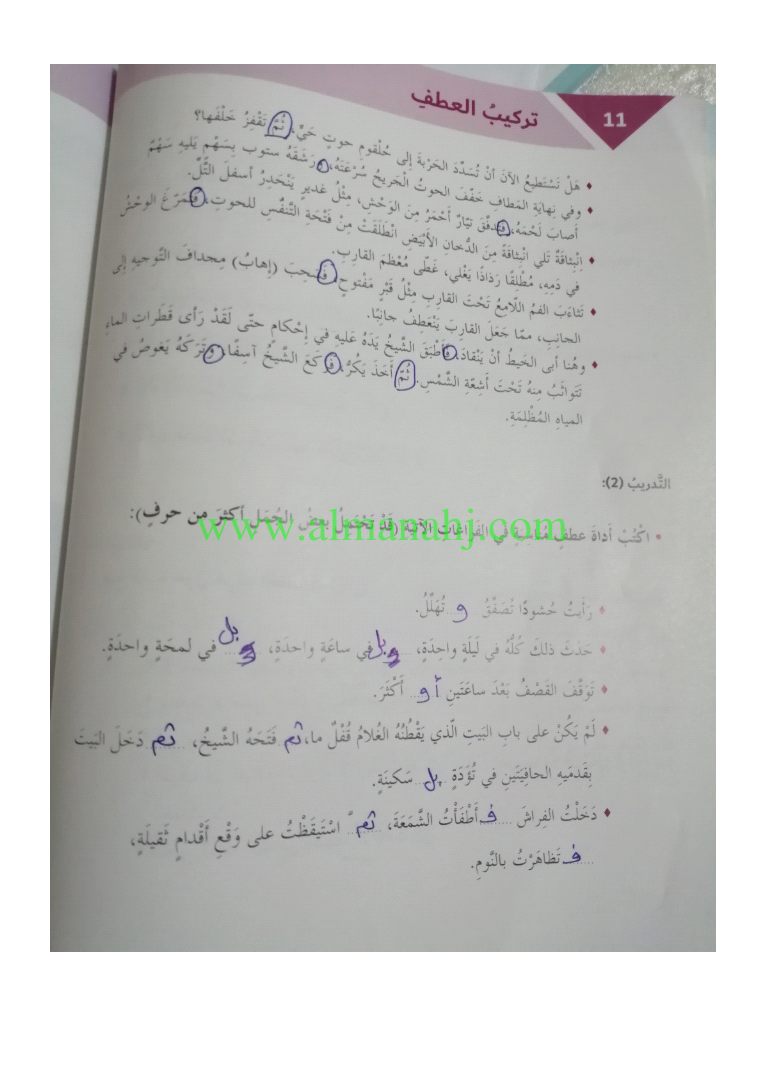 11
تركيبُ العطفِ
♦ هَلْ تَسْتَطيعُ الآنَ أَنْ تُسَدِّدَ الحَرْبَةَ إِلى حُلْقومِ حوتٍ حَيٍّ، ثُمَّ تَقْفِزُ خَلْفَها؟
♦ وفي نِهايَةِ المَطافِ خَفَّفَ الحوتُ الْجَريحُ سُرْعَتَهُ، ورَشَقَهُ ستوب بِسَهْمٍ يَليهِ سَهْمٌ
أَصابَ لَحْمَهُ، فَتَدفَّقَ تَيّارٌ أَحْمَرُ مِنَ الوَحْشِ، مِثْلُ غَديرٍ يَنْحَدِرُ أسفلَ التَّلِّ.
♦ اِنْبِثاقَةٌ تَلي انْبِثاقَةً مِنَ الدُّخانِ الأَبْيَضِ انْطَلَقَتْ مِنْ فَتْحَةِ التَّنفُّسِ للحوتِ، فَتَمَرّغَ الوحْشُ
في دَمِهِ، مُطْلِقًا رَذاذًا يَغْلي، غَطّى مُعْظَمَ القارِبِ.
♦ تَثاءَبَ الفمُ اللّامِعُ تَحْتَ القارِبِ مِثْلُ قَبْرٍ مَفْتوحٍ، فَسَحِبَ (إهابُ) مِجدافَ التّوجيهِ إلى
الجانِبِ، ممّا جَعَلَ القاربَ يَنْعَطِفُ جانِبًا.
♦ وهُنا أبى الخَيطُ أنْ يَنْقادَ، فَأَطْبَقَ الشَّيخُ يَدَهُ عَليهِ في إحْكامٍ حتّى لَقَدْ رَأى قَطَراتِ الماءِ
تَتَواثَبُ مِنهُ تَحْتَ أَشِعّةِ الشَّمْسِ. ثُمَّ أَخَذَ يَكُرُّ، فَرَكَعَ الشَّيخُ آسِفًا، وتَرَكَهُ يَغوصُ في
المياهِ المُظْلِمَةِ.
التَّدريبُ (2):
• اكْتُبْ أداةَ عطفٍ مُناسبةٍ في الفَراغاتِ الآتيةِ (قَدْ تَحْتَمِلُ بعضُ الجُمَلِ أكثرَ من حرفٍ):
www.almanahj.com
♦ رَأَيتُ حُشودًا تُصَفِّقُ و تُهَلِّلُ.
♦ حَدَثَ ذلكَ كُلُّهُ في لَيلَةٍ واحِدَةٍ، بل في ساعَةٍ واحدَةٍ، بل في لمحَةٍ واحدَةٍ.
♦ تَوَقَّفَ القَصْفُ بَعْدَ ساعَتَينِ أو أَكْثَرَ.
♦ لَمْ يَكُنْ على بابِ البَيتِ الّذي يَقْطُنُهُ الغُلامُ قُفْلٌ ما، ثم فَتَحَهُ الشَّيخُ، ثم دَخَلَ البَيتَ
بِقَدَميهِ الحافِيَتَينِ في تُؤَدَةٍ بل سَكينَةٍ.
♦ دَخَلْتُ الفِراشَ ف أَطْفَأْتُ الشَّمْعَةَ، ثم اسْتَيقَظْتُ على وَقْعِ أَقْدامٍ ثَقيلَةٍ،
ف تَظاهَرْتُ بالنَّومِ.